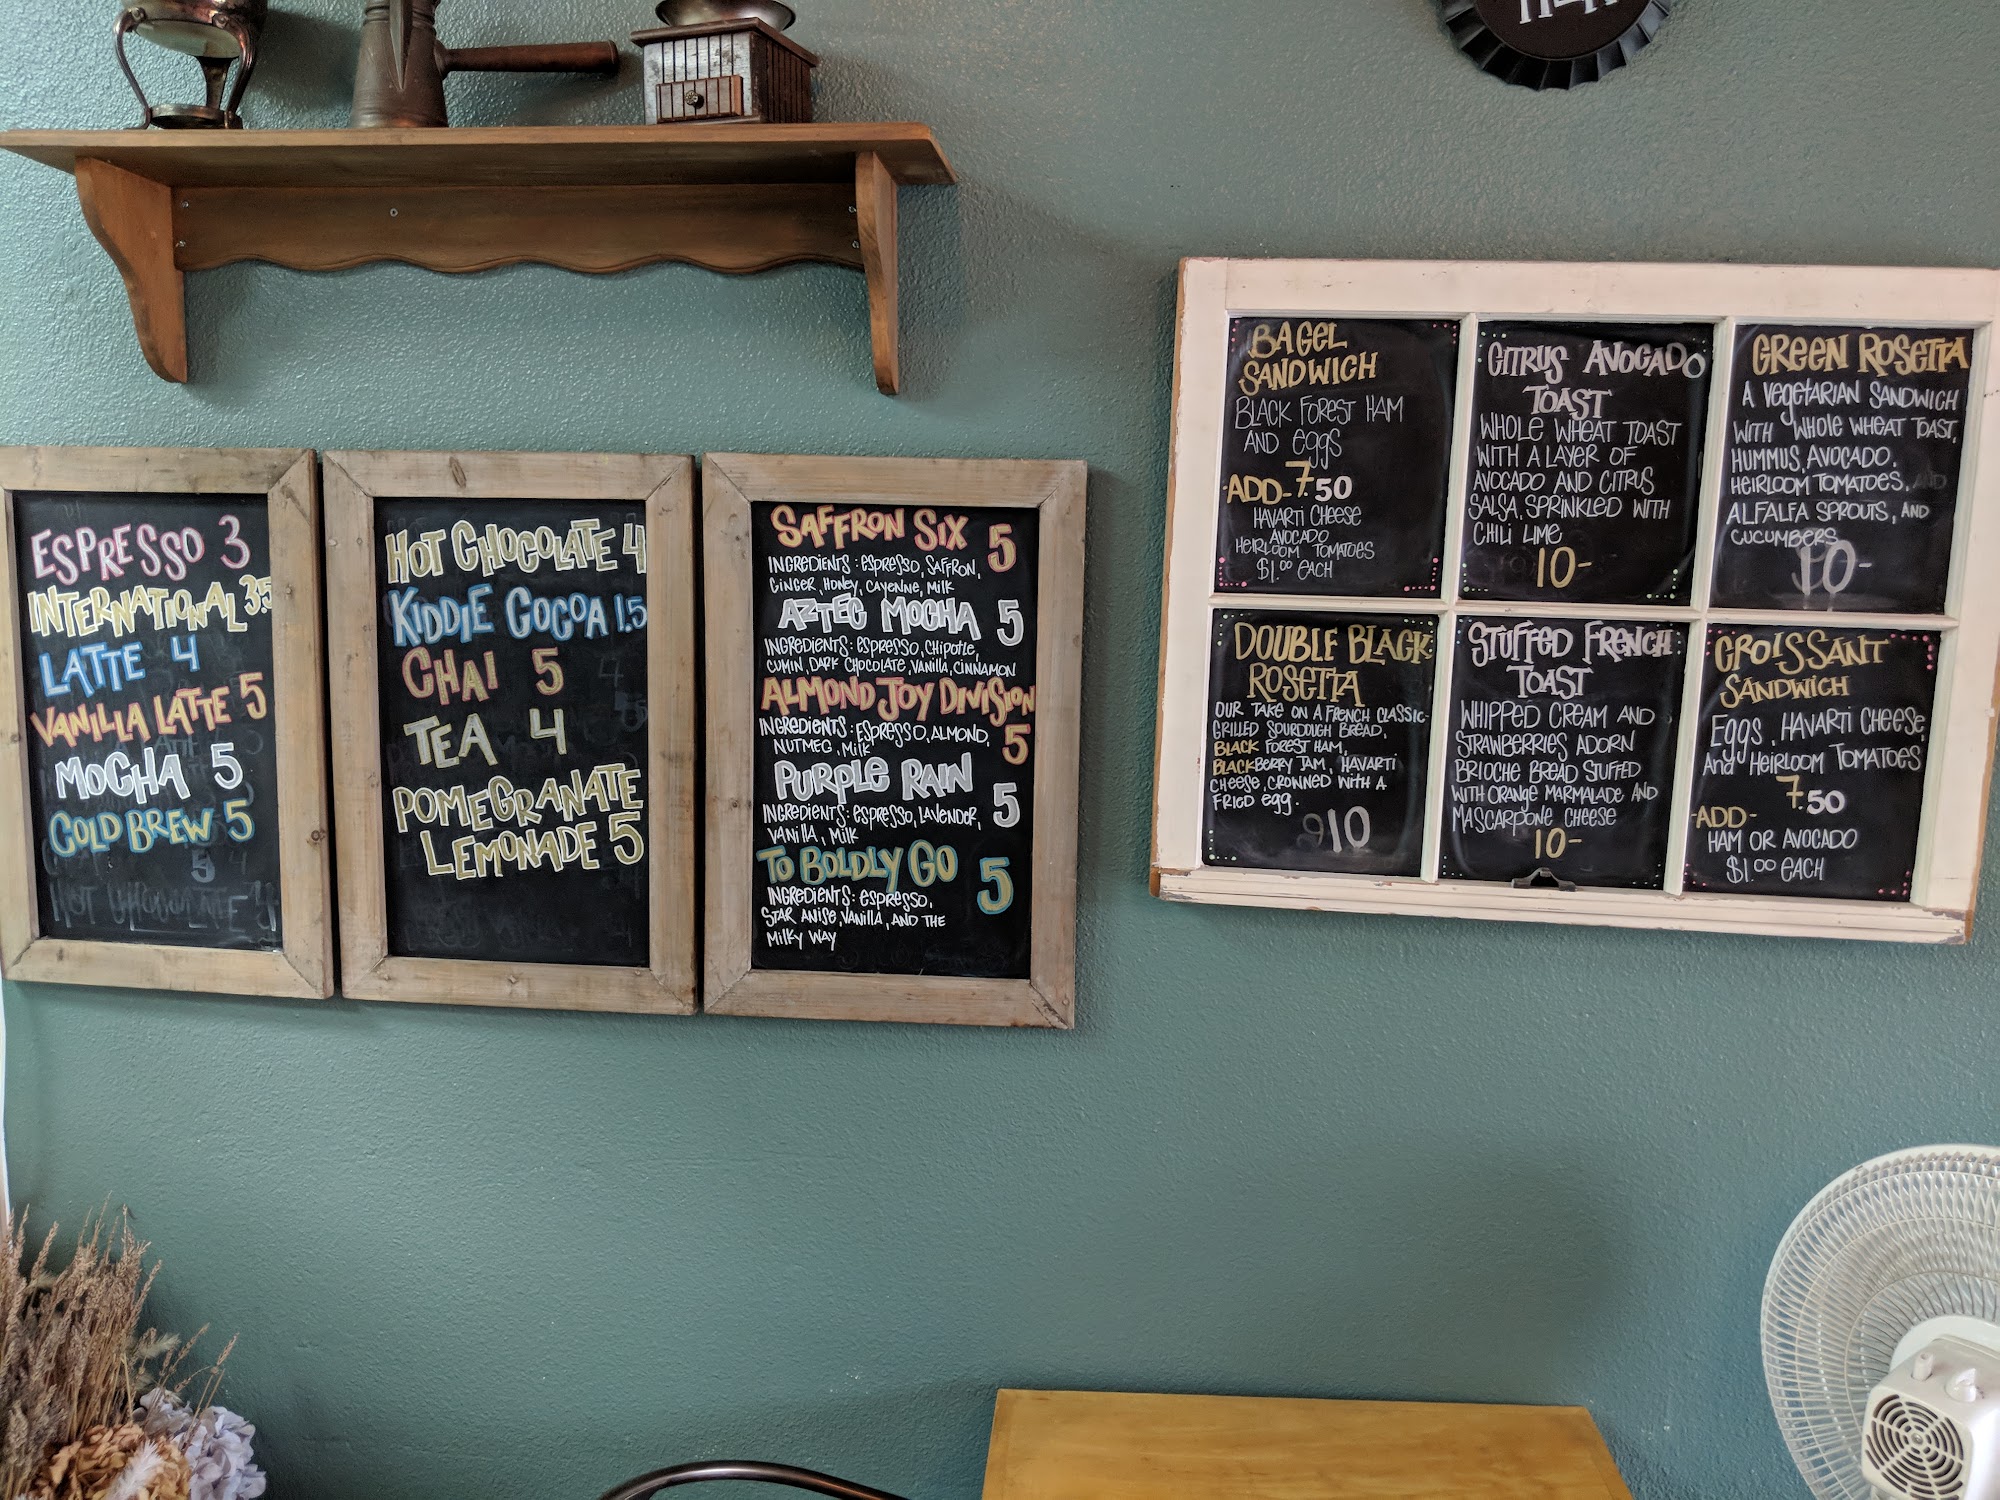 ESPRESSO 3
INTERNATIONAL 3.5
LATTE 4
VANILLA LATTE 5
MOCHA 5
COLD BREW 5
5
HOT CHOCOLATE
HOT CHOCOLATE 4
KIDDIE COCOA 1.5
CHAI 5
TEA 4
POMEGRANATE
LEMONADE 5
SAFFRON SIX 5
INGREDIENTS: ESPRESSO, SAFFRON,
GINGER, HONEY, CAYENNE, MILK
AZTEC MOCHA 5
INGREDIENTS: ESPRESSO, CHIPOTLE,
CUMIN, DARK CHOCOLATE, VANILLA, CINNAMON
ALMOND JOY DIVISION
INGREDIENTS: ESPRESSO, ALMOND, 5
NUTMEG, MILK
PURPLE RAIN 5
INGREDIENTS: ESPRESSO, LAVENDER,
VANILLA, MILK
TO BOLDLY GO 5
INGREDIENTS: ESPRESSO,
STAR ANISE, VANILLA, AND THE
MILKY WAY
BAGEL
SANDWICH
BLACK FOREST HAM
AND EGGS
7.50
ADD-
HAVARTI CHEESE
AVOCADO
HEIRLOOM TOMATOES
$1.00 EACH
CITRUS AVOCADO
TOAST
WHOLE WHEAT TOAST
WITH A LAYER OF
AVOCADO AND CITRUS
SALSA, SPRINKLED WITH
CHILI LIME
10-
GREEN ROSETTA
A VEGETARIAN SANDWICH
WITH WHOLE WHEAT TOAST,
HUMMUS, AVOCADO,
HEIRLOOM TOMATOES, AND
ALFALFA SPROUTS, AND
CUCUMBERS
10-
DOUBLE BLACK
ROSETTA
OUR TAKE ON A FRENCH CLASSIC-
GRILLED SOURDOUGH BREAD,
BLACK FOREST HAM,
BLACKBERRY JAM, HAVARTI
CHEESE, CROWNED WITH A
FRIED EGG.
10
STUFFED FRENCH
TOAST
WHIPPED CREAM AND
STRAWBERRIES ADORN
BRIOCHE BREAD STUFFED
WITH ORANGE MARMALADE AND
MASCARPONE CHEESE
10-
CROISSANT
SANDWICH
EGGS, HAVARTI CHEESE,
AND HEIRLOOM TOMATOES
7.50
ADD-
HAM OR AVOCADO
$1.00 EACH